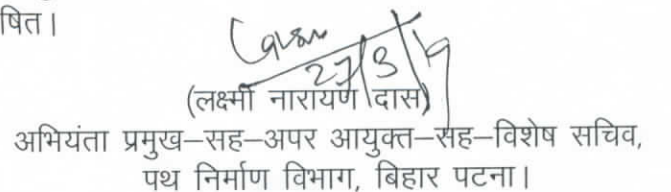 षित।
27/3/19
(लक्ष्मी नारायण दास)
अभियंता प्रमुख–सह–अपर आयुक्त–सह–विशेष सचिव,
पथ निर्माण विभाग, बिहार पटना।